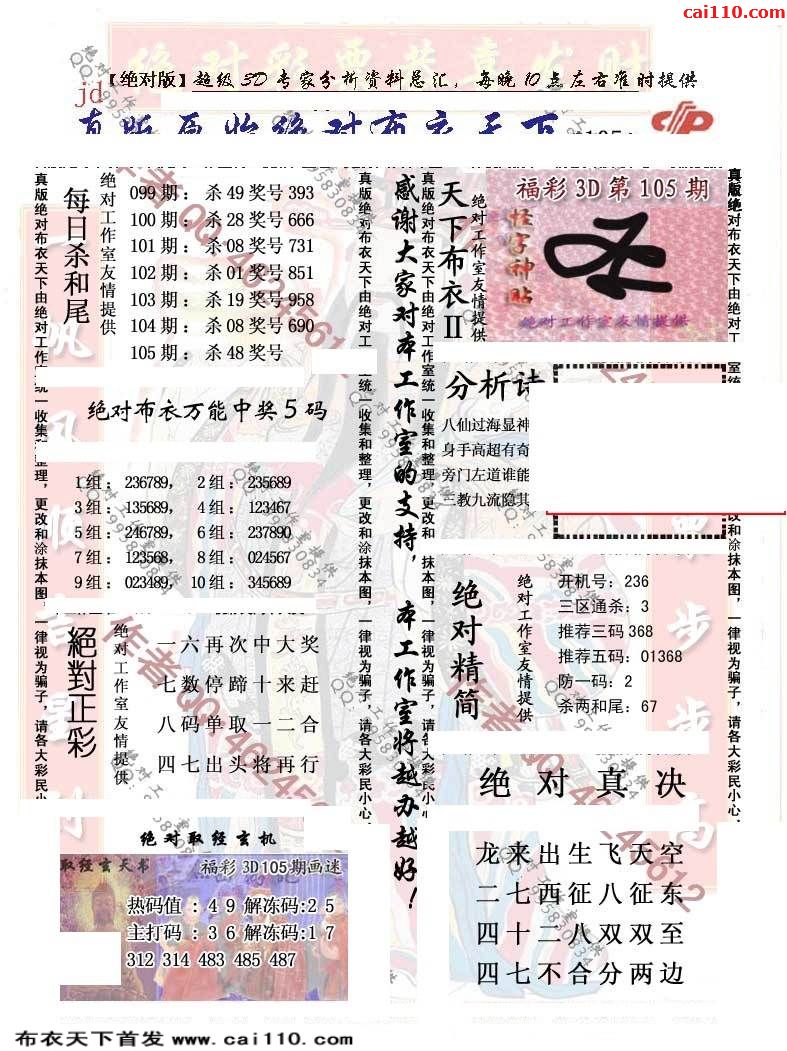 cai110.com
绝对彩票共享发财
jd【绝对版】超级3D专家分析资料总汇，每晚10点左右准时提供
真版原始绝对布衣天下
每日杀和尾
绝对工作室友情提供
099期：杀49奖号393
100期：杀28奖号666
101期：杀08奖号731
102期：杀01奖号851
103期：杀19奖号958
104期：杀08奖号690
105期：杀48奖号
绝对布衣万能中奖5码
1组：236789， 2组：235689
3组：135689， 4组：123467
5组：246789， 6组：237890
7组：123568， 8组：024567
9组：023489， 10组：345689
絕對正彩
绝对工作室友情提供
一六再次中大奖
七数停蹄十来赶
八码单取一二合
四七出头将再行
真版绝对布衣天下由绝对工作室统一收集和整理，更改和涂抹本图，一律视为骗子，请各大彩民小心
感谢大家对本工作室的支持，本工作室将越办越好！
天下布衣II
绝对工作室友情提供
福彩3D第105期
怪字神貼
绝对工作室友情提供
分析诗
八仙过海显神
身手高超有奇
旁门左道谁能
三教九流隐其
绝对精简
绝对工作室友情提供
开机号：236
三区通杀：3
推荐三码368
推荐五码：01368
防一码：2
杀两和尾：67
绝对真决
龙来出生飞天空
二七西征八征东
四十二八双双至
四七不合分两边
绝对取经玄机
取经玄天书
福彩3D105期画迷
热码值：49解冻码：25
主打码：36解冻码：17
312 314 483 485 487
布衣天下首发 www.cai110.com